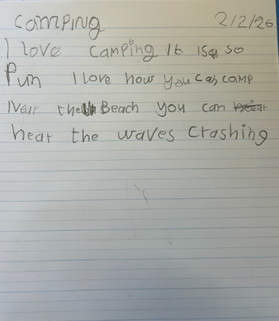 camping 2/2/26
I love camping It is so
Fun I love how you can camp
Near the Beach you can
hear the waves crashing